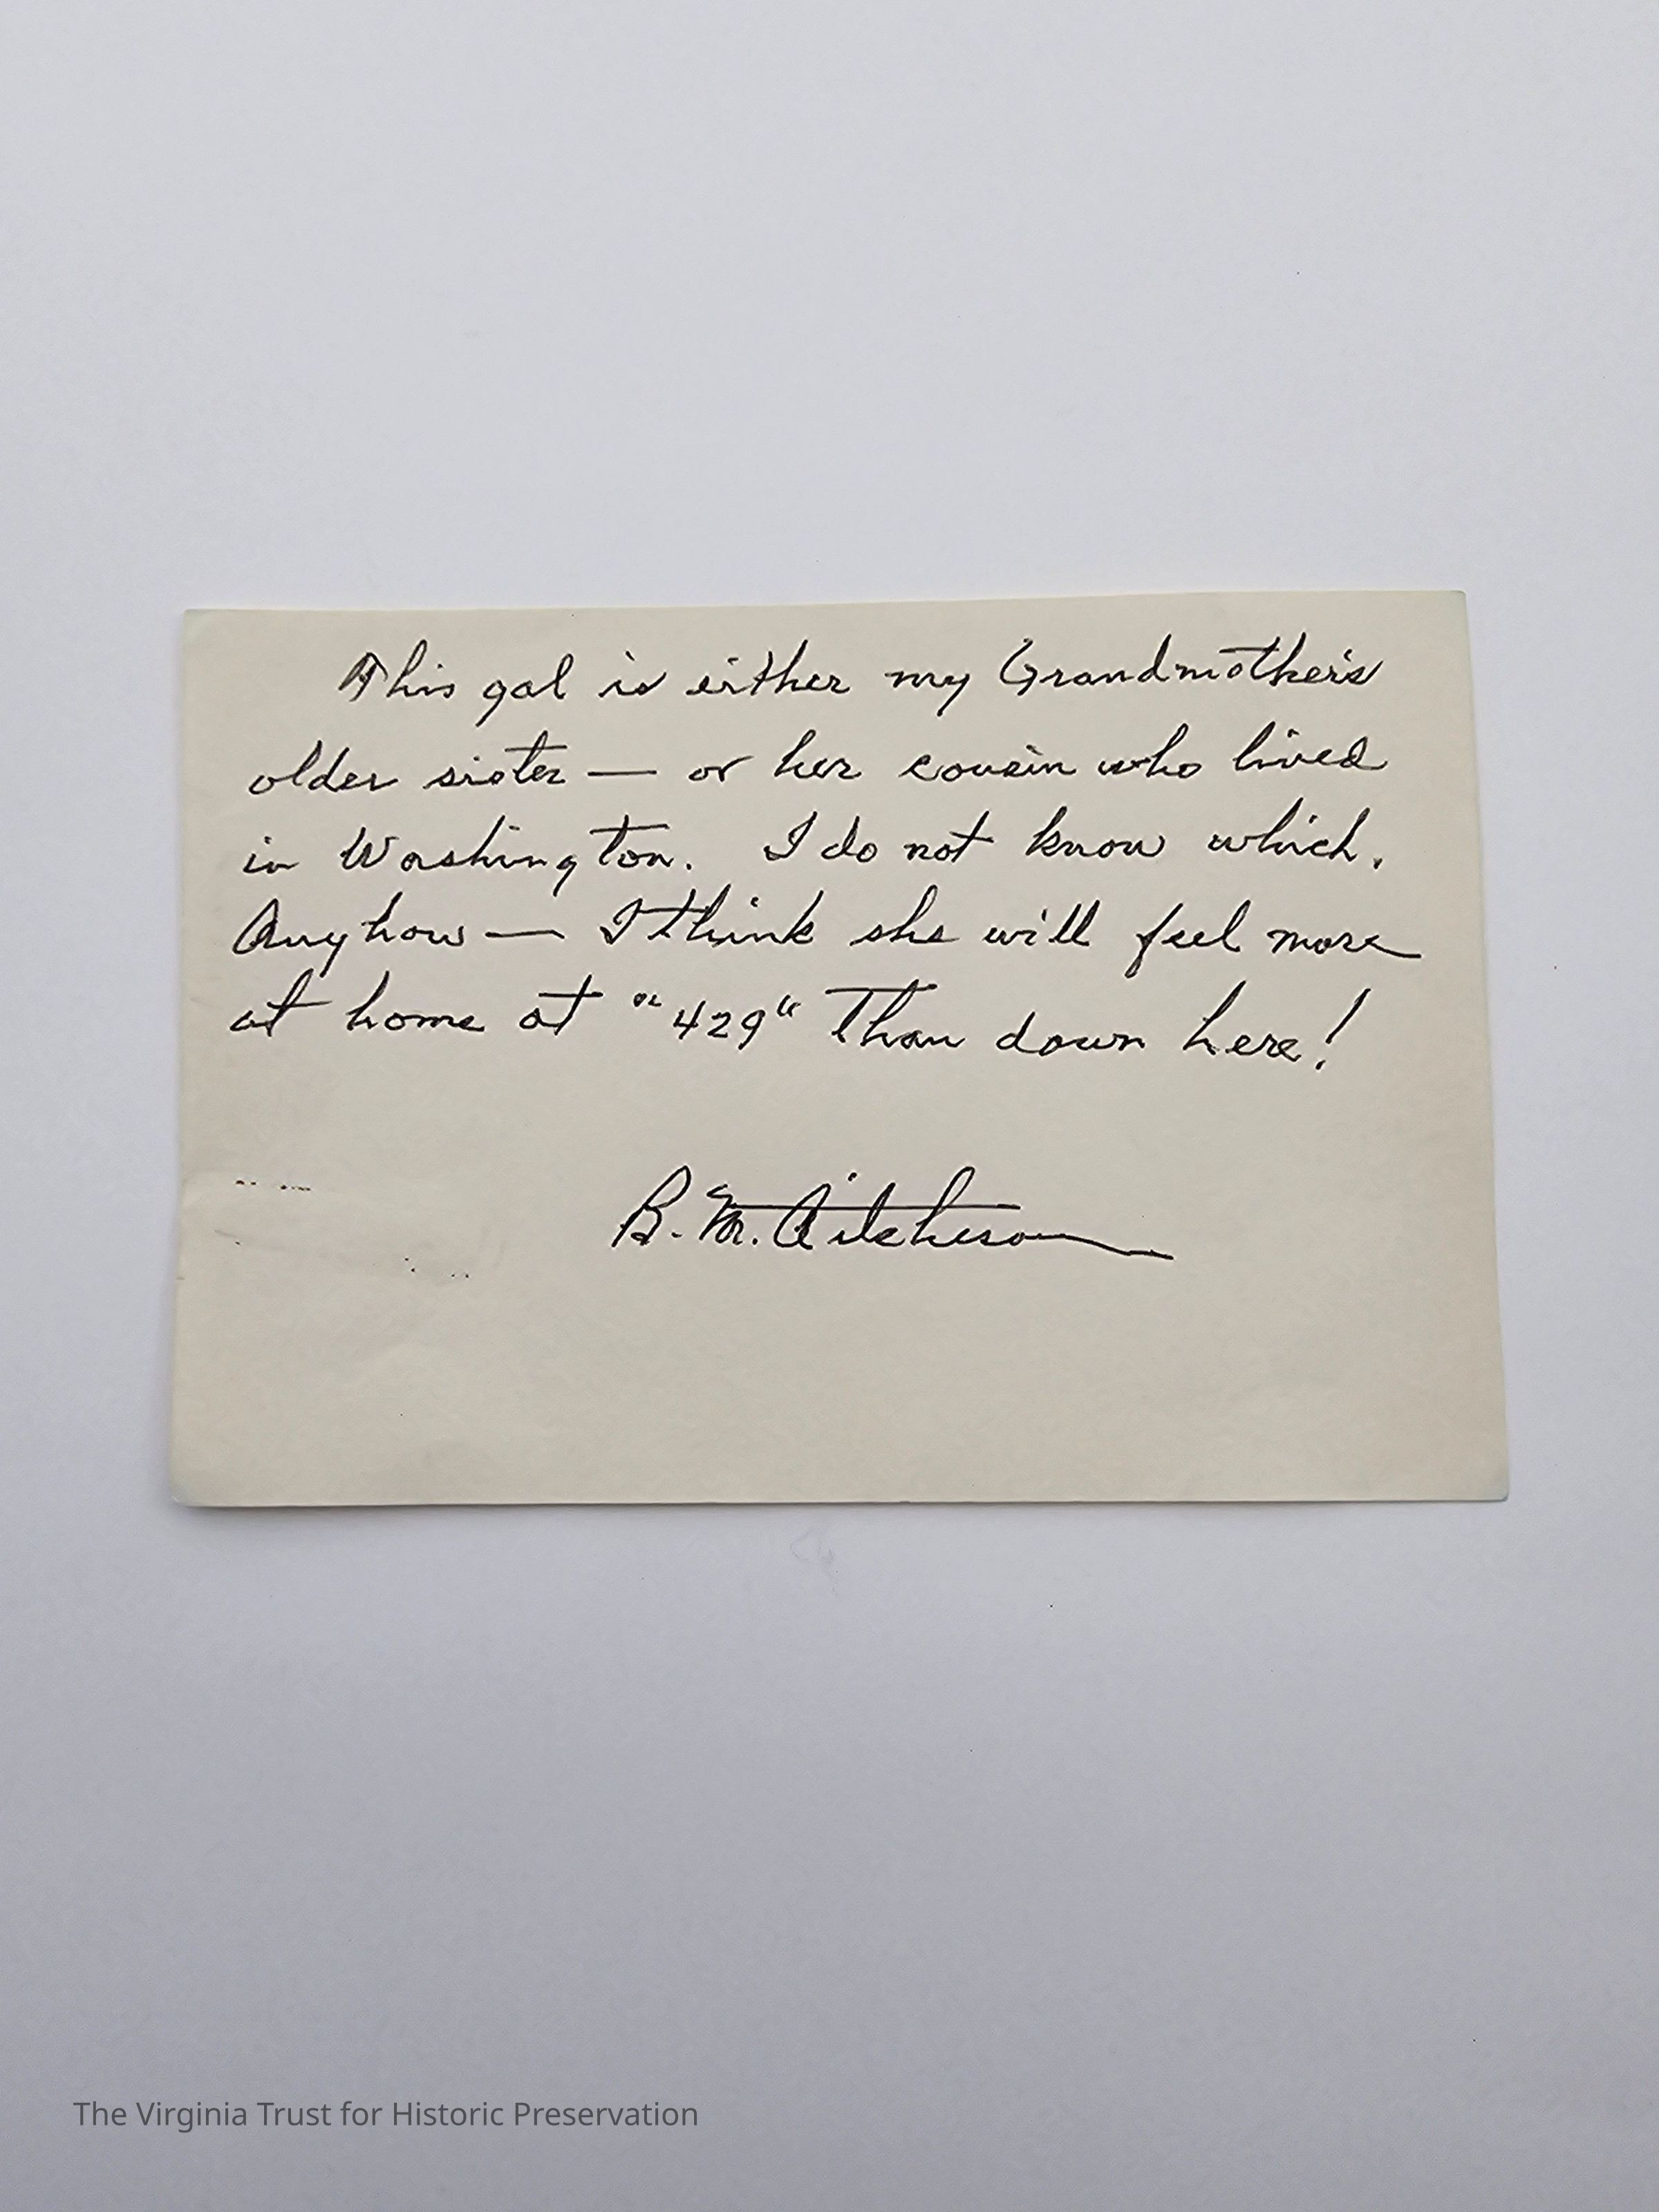 This gal is either my Grandmother's
older sister — or her cousin who lived
in Washington. I do not know which.
Anyhow — I think she will feel more
at home at "429" Than down here!
B. M. Aitcheson
The Virginia Trust for Historic Preservation